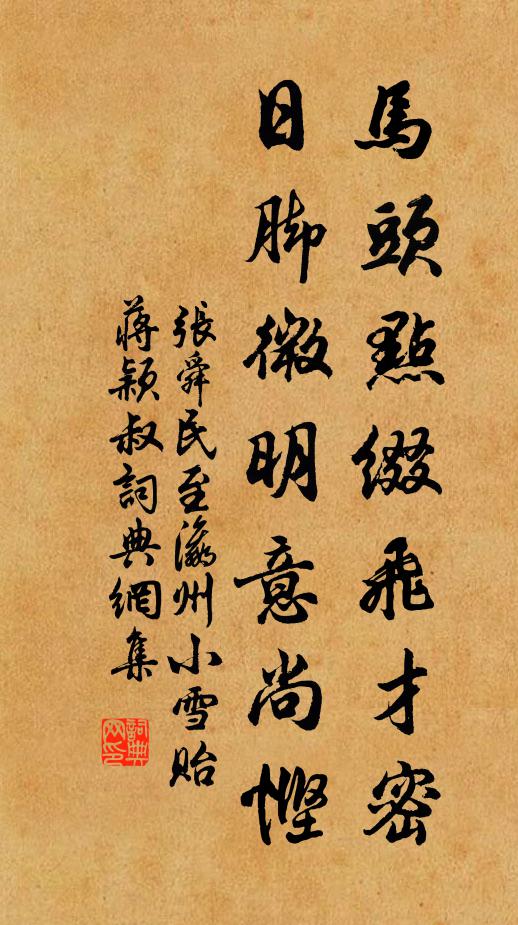 馬頭點綴飛才密
日脚微明意尚慳
張舜民至瀛州小雪貽
蔣穎叔詞典網集
詞典網印